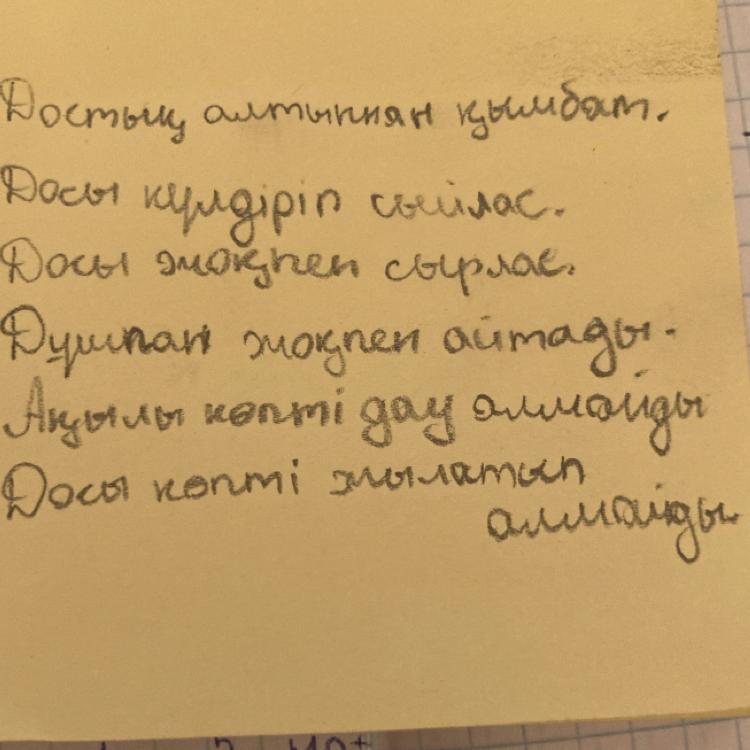 Достық алтыннан қымбат.
Досы күлдіріп сыйлас.
Досы жоқпен сырлас.
Дұшпан жоқпен айтады.
Ақылы көпті дау алмайды
Досы көпті жылатып
алмайды